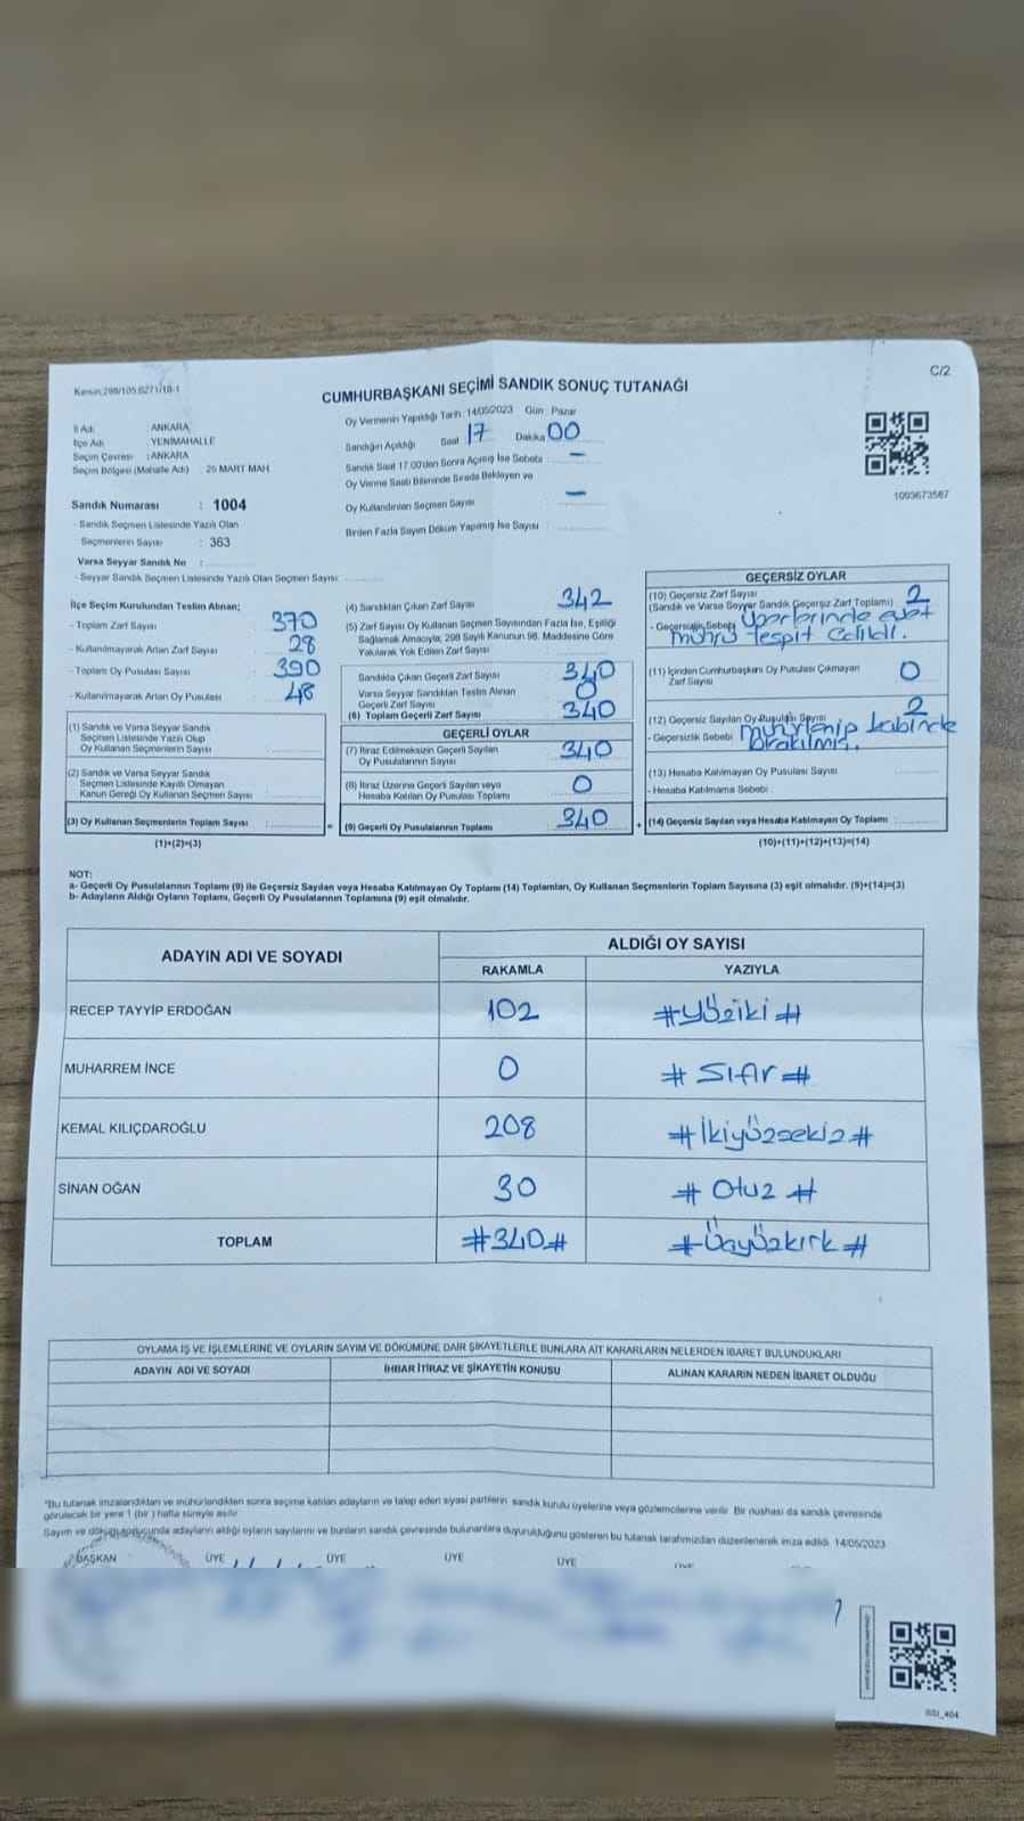 C/2
CUMHURBAŞKANI SEÇİMİ SANDIK SONUÇ TUTANAĞI
İl Adı : ANKARA
İlçe Adı : YENİMAHALLE
Seçim Çevresi : ANKARA
Seçim Bölgesi (Mahalle Adı) 25 MART MAH
Sandık Numarası : 1004
- Sandık Seçmen Listesinde Yazılı Olan
Seçmenlerin Sayısı : 363
Varsa Seyyar Sandık No :
- Seyyar Sandık Seçmen Listesinde Yazılı Olan Seçmen Sayısı
Oy Vermenin Yapıldığı Tarih: 14/05/2023 Gün: Pazar
Sandığın Açıldığı Saat 17 Dakika 00
Sandık Saat 17.00'den Sonra Açılmış İse Sebebi : -
Oy Verme Saati Bitiminde Sırada Bekleyen ve
Oy Kullandırılan Seçmen Sayısı -
Birden Fazla Sayım Döküm Yapılmış İse Sayısı
1003673567
İlçe Seçim Kurulundan Teslim Alınan;
- Toplam Zarf Sayısı 370
- Kullanılmayarak Artan Zarf Sayısı 28
- Toplam Oy Pusulası Sayısı 390
- Kullanılmayarak Artan Oy Pusulası 48
(1) Sandık ve Varsa Seyyar Sandık
Seçmen Listesinde Yazılı Olup
Oy Kullanan Seçmenlerin Sayısı
(2) Sandık ve Varsa Seyyar Sandık
Seçmen Listesinde Kayıtlı Olmayan
Kanun Gereği Oy Kullanan Seçmen Sayısı
(3) Oy Kullanan Seçmenlerin Toplam Sayısı :
(1)+(2)=(3)
(4) Sandıktan Çıkan Zarf Sayısı 342
(5) Zarf Sayısı Oy Kullanan Seçmen Sayısından Fazla İse, Eşitliği
Sağlamak Amacıyla, 298 Sayılı Kanunun 98. Maddesine Göre
Yakılarak Yok Edilen Zarf Sayısı
Sandıkta Çıkan Geçerli Zarf Sayısı 340
Varsa Seyyar Sandıktan Teslim Alınan
Geçerli Zarf Sayısı 0
(6) Toplam Geçerli Zarf Sayısı 340
GEÇERLİ OYLAR
(7) İtiraz Edilmeksizin Geçerli Sayılan
Oy Pusulalarının Sayısı 340
(8) İtiraz Üzerine Geçerli Sayılan veya
Hesaba Katılan Oy Pusulası Toplamı 0
= (9) Geçerli Oy Pusulalarının Toplamı 340
GEÇERSİZ OYLAR
(10) Geçersiz Zarf Sayısı
(Sandık ve Varsa Seyyar Sandık Geçersiz Zarf Toplamı) 2
- Geçersizlik Sebebi Üzerlerinde evet
mührü tespit edildi.
(11) İçinden Cumhurbaşkanı Oy Pusulası Çıkmayan
Zarf Sayısı 0
(12) Geçersiz Sayılan Oy Pusulası Sayısı 2
- Geçersizlik Sebebi mühürlenip kabinde
bırakılmış.
(13) Hesaba Katılmayan Oy Pusulası Sayısı
- Hesaba Katılmama Sebebi :
+ (14) Geçersiz Sayılan veya Hesaba Katılmayan Oy Toplamı :
(10)+(11)+(12)+(13)=(14)
NOT:
a- Geçerli Oy Pusulalarının Toplamı (9) ile Geçersiz Sayılan veya Hesaba Katılmayan Oy Toplamı (14) Toplamları, Oy Kullanan Seçmenlerin Toplam Sayısına (3) eşit olmalıdır. (9)+(14)=(3)
b- Adayların Aldığı Oyların Toplamı, Geçerli Oy Pusulalarının Toplamına (9) eşit olmalıdır.
ADAYIN ADI VE SOYADI ALDIĞI OY SAYISI
RAKAMLA YAZIYLA
RECEP TAYYİP ERDOĞAN 102 #Yüziki#
MUHARREM İNCE 0 #Sıfır#
KEMAL KILIÇDAROĞLU 208 #İkiyüzsekiz#
SİNAN OĞAN 30 #Otuz#
TOPLAM #340# #Üçyüzkırk#
OYLAMA İŞ VE İŞLEMLERİNE VE OYLARIN SAYIM VE DÖKÜMÜNE DAİR ŞİKAYETLERLE BUNLARA AİT KARARLARIN NELERDEN İBARET BULUNDUKLARI
ADAYIN ADI VE SOYADI İHBAR İTİRAZ VE ŞİKAYETİN KONUSU ALINAN KARARIN NEDEN İBARET OLDUĞU
*Bu tutanak imzalandıktan ve mühürlendikten sonra seçime katılan adayların ve talep eden siyasi partilerin sandık kurulu üyelerine veya gözlemcilerine verilir. Bir nüshası da sandık çevresinde
görülecek bir yere 1 (bir) hafta süreyle asılır.
Sayım ve döküm sonucunda adayların aldığı oyların sayılarını ve bunların sandık çevresinde bulunanlara duyurulduğunu gösteren bu tutanak tarafımızdan düzenlenerek imza edildi. 14/05/2023
BAŞKAN ÜYE ÜYE ÜYE ÜYE